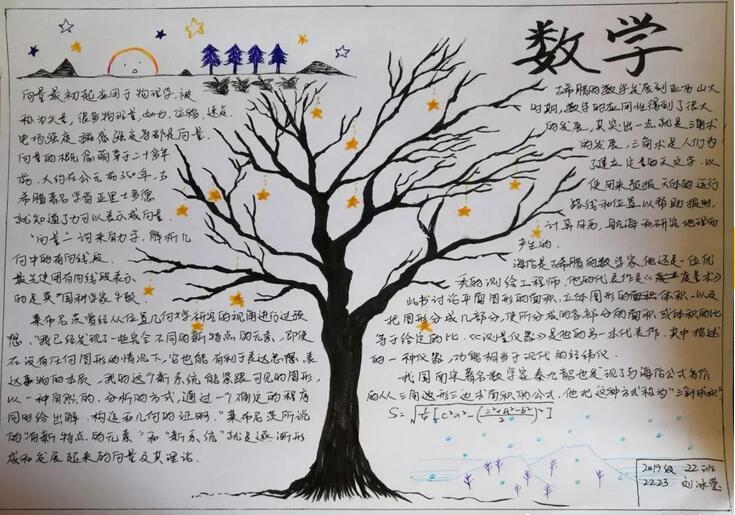 数学
向量最初起应用于物理学，被
称为矢量，很多物理量，如力，位移，速度
电场强度，磁感强度等都是向量，
向量的概念萌芽于二千多年
前，大约在公元前350年，古
希腊著名学者亚里士多德
就知道了力可以表示成向量
"向量"一词来自力学，解析几
何中的有向线段
最先使用有向线段表示
的是英国科学家牛顿
莱布尼茨曾经从位置几何学研究的视角进行过设
想，"我已经发现了一些完全不同的新特点的元素，即使
在没有任何图形的情况下，它也能有利于表达思想、表
达事物的本质，我的这个新系统能紧跟可见的图形，
以一种自然的，分析的方式，通过一个确定的程序
同时给出解，构造和几何的证明。"莱布尼茨所说
的"有新特点的元素"和"新系统"就是逐渐形
成和发展起来的向量及其理论.
古希腊的数学发展到亚历山大
时期，数学的应用性得到了很大
的发展，其突出一点就是三角术
的发展，三角术是人们为
了建立定量的天文学，以
便用来预报天体的运行
路线和位置以帮助报时，
计算日历，航海和研究地理而
产生的
海伦是古希腊的数学家，他还是一位优
秀的测绘工程师，他的代表作是《度量术》
此书讨论平面图形的面积，立体图形的面积体积，以及
把图形分成几部分，使所分成的各部分的面积或体积的比
等于给定的比.《测量仪器》是他的另一本代表作，其中描述
的一种仪器，功能相当于现代的经纬仪
我国南宋著名数学家秦九韶也发现了与海伦公式等价
的从三角边形三边求面积的公式，他把这种方式称为"三斜求积"
2019级 22班
2223 刘冰莹